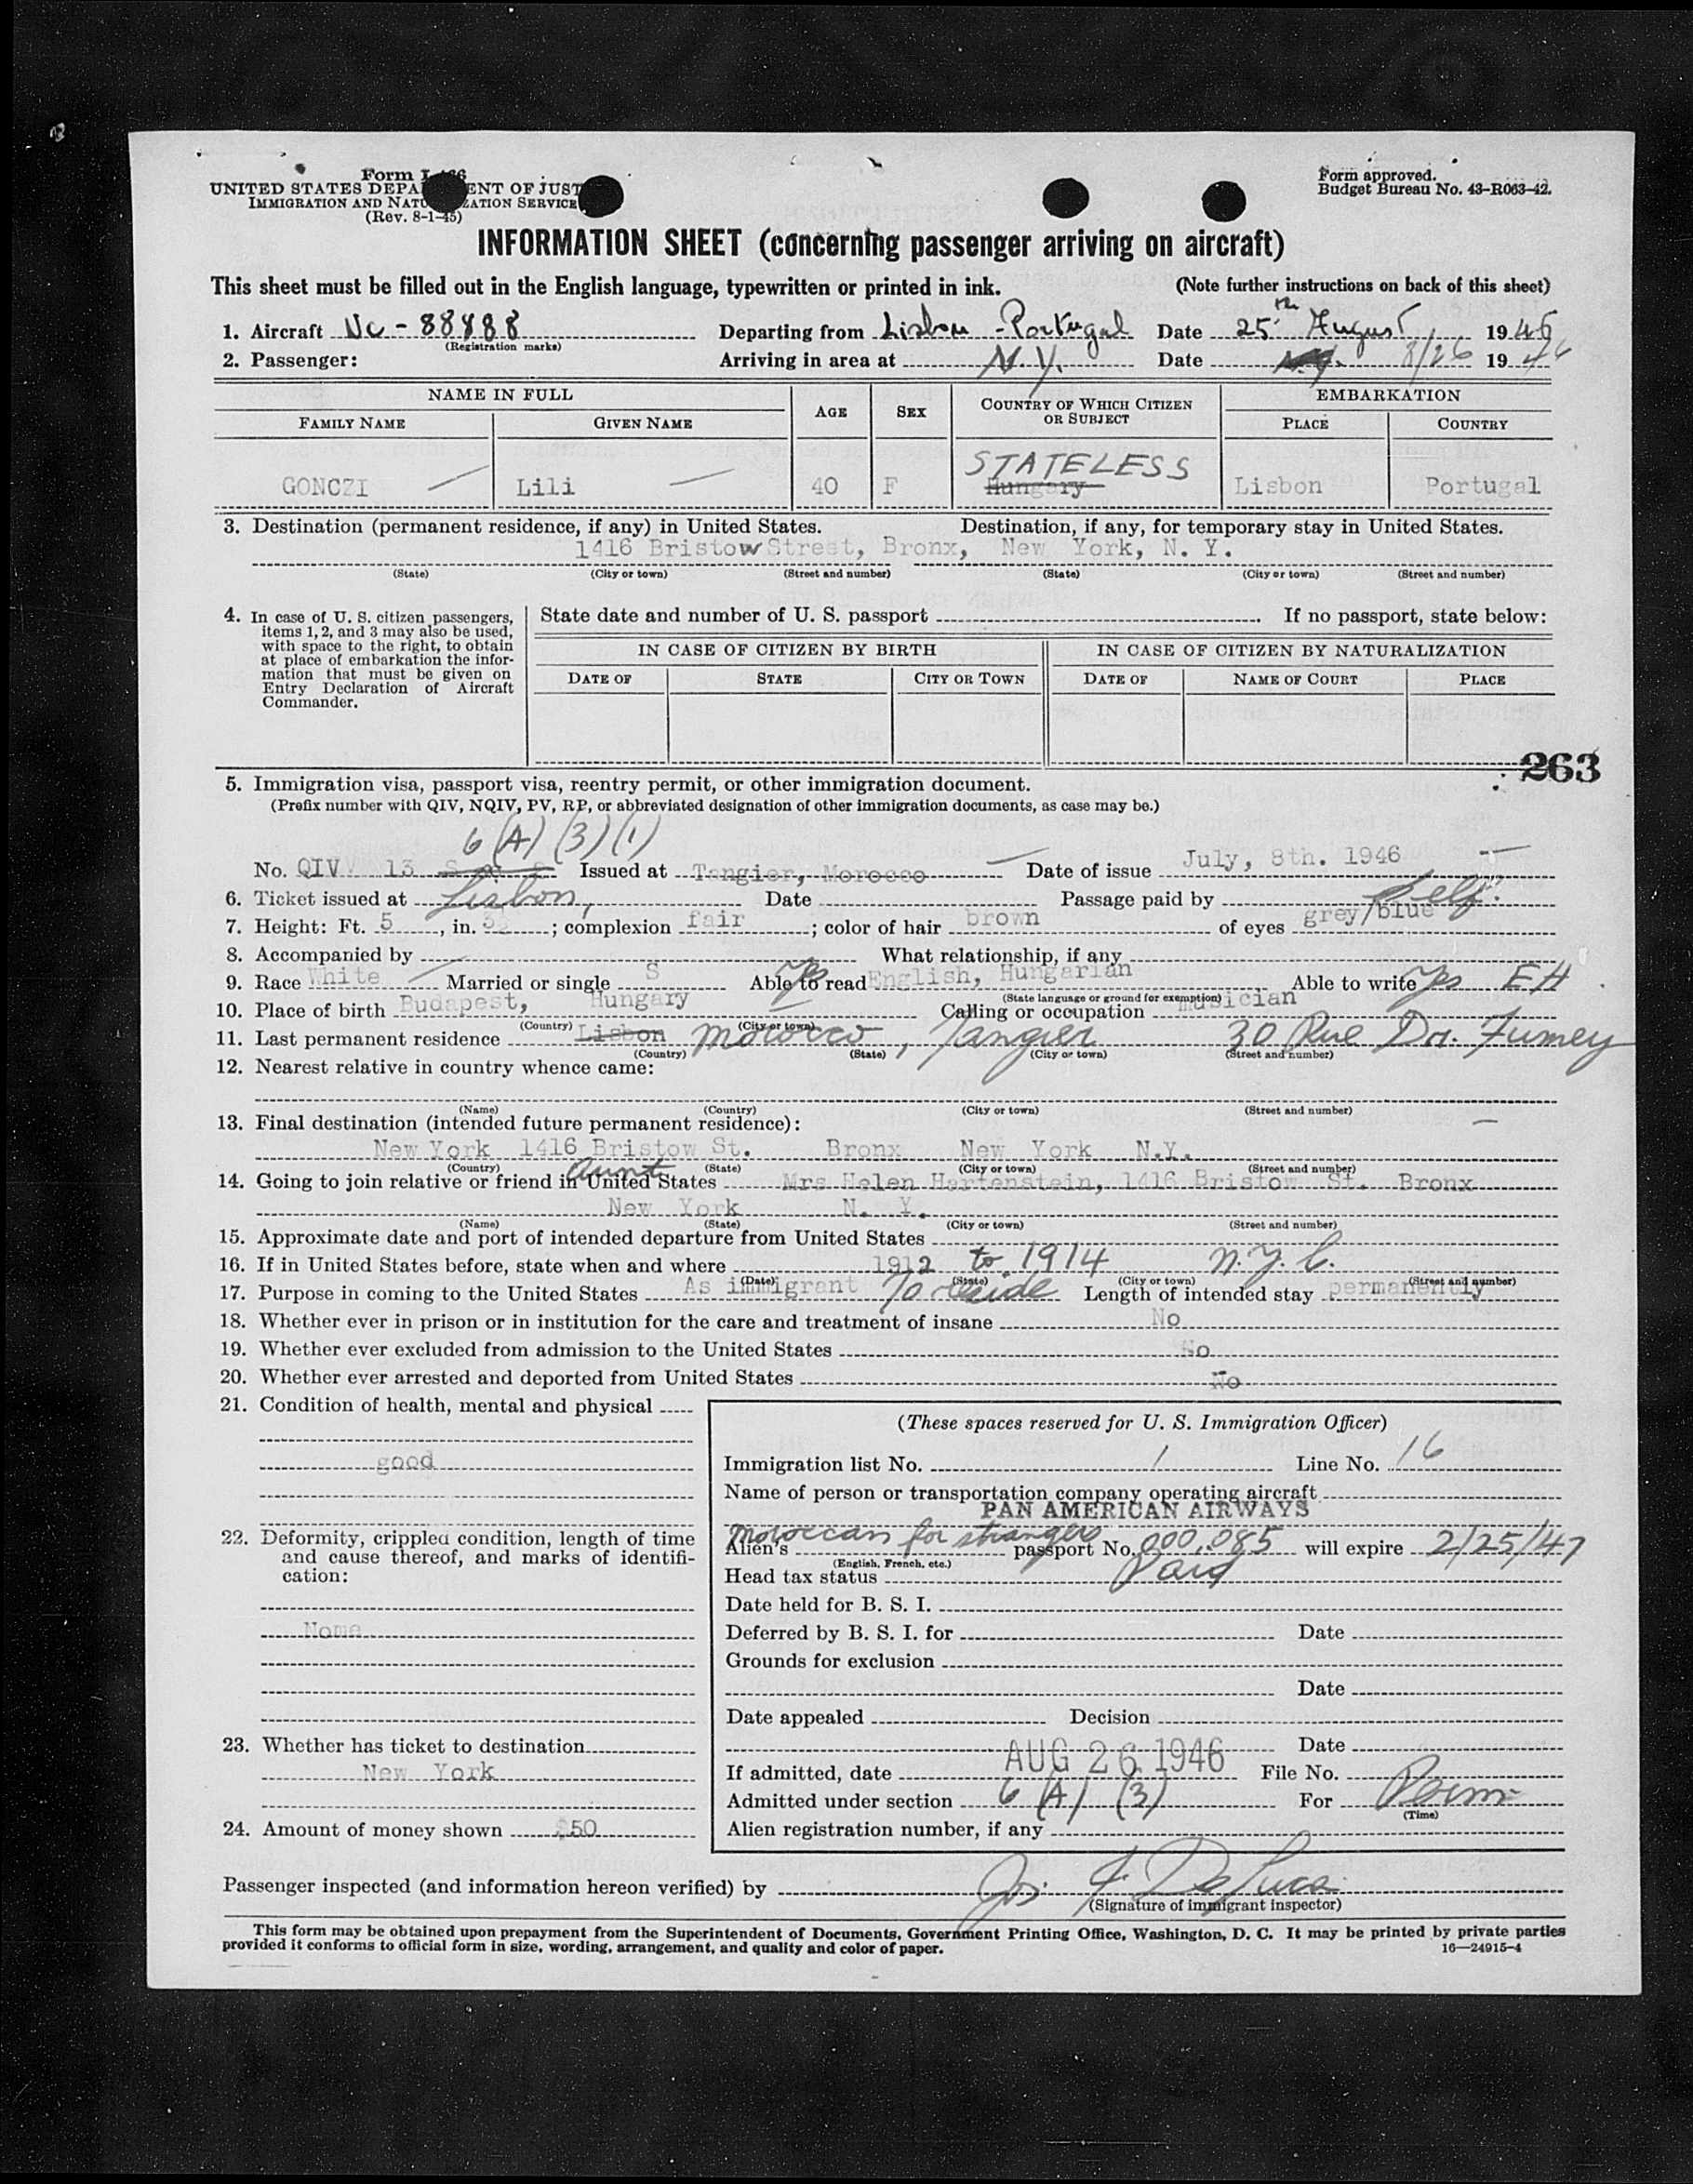 Form I-466
UNITED STATES DEPARTMENT OF JUSTICE
IMMIGRATION AND NATURALIZATION SERVICE
(Rev. 8-1-45)
Form approved.
Budget Bureau No. 43-R063-42.
INFORMATION SHEET (concerning passenger arriving on aircraft)
This sheet must be filled out in the English language, typewritten or printed in ink. (Note further instructions on back of this sheet)
1. Aircraft Nc-88888 Departing from Lisbon - Portugal Date 25th August 1946
(Registration marks)
2. Passenger: Arriving in area at N.Y. Date 8/26 1946
NAME IN FULL AGE SEX COUNTRY OF WHICH CITIZEN OR SUBJECT EMBARKATION
FAMILY NAME GIVEN NAME PLACE COUNTRY
STATELESS
GONCZI Lili 40 F Hungary Lisbon Portugal
3. Destination (permanent residence, if any) in United States. Destination, if any, for temporary stay in United States.
1416 Bristow Street, Bronx, New York, N. Y.
(State) (City or town) (Street and number) (State) (City or town) (Street and number)
4. In case of U. S. citizen passengers, items 1, 2, and 3 may also be used, with space to the right, to obtain at place of embarkation the information that must be given on Entry Declaration of Aircraft Commander.
State date and number of U. S. passport If no passport, state below:
IN CASE OF CITIZEN BY BIRTH IN CASE OF CITIZEN BY NATURALIZATION
DATE OF STATE CITY OR TOWN DATE OF NAME OF COURT PLACE
263
5. Immigration visa, passport visa, reentry permit, or other immigration document.
(Prefix number with QIV, NQIV, PV, RP, or abbreviated designation of other immigration documents, as case may be.)
6 (A) (3) (1)
No. QIV 13 Issued at Tangier, Morocco Date of issue July, 8th. 1946
6. Ticket issued at Lisbon, Date Passage paid by Self
7. Height: Ft. 5, in. 3; complexion fair; color of hair brown of eyes grey/blue
8. Accompanied by What relationship, if any
9. Race White Married or single S Able to read Yes English, Hungarian Able to write Yes EH
(State language or ground for exemption)
10. Place of birth Budapest, Hungary Calling or occupation musician
(Country) (City or town)
11. Last permanent residence Lisbon Morocco, Tangier 30 Rue Dr. Fumey
(Country) (State) (City or town) (Street and number)
12. Nearest relative in country whence came:
(Name) (Country) (City or town) (Street and number)
13. Final destination (intended future permanent residence):
New York 1416 Bristow St. Bronx New York N.Y.
(Country) (State) (City or town) (Street and number)
14. Going to join relative or friend in United States aunt Mrs Helen Hartenstein, 1416 Bristow St. Bronx
New York N. Y.
(Name) (State) (City or town) (Street and number)
15. Approximate date and port of intended departure from United States
16. If in United States before, state when and where 1912 to 1914 N.Y.C.
(Date) (State) (City or town) (Street and number)
17. Purpose in coming to the United States As immigrant To reside Length of intended stay permanently
18. Whether ever in prison or in institution for the care and treatment of insane No
19. Whether ever excluded from admission to the United States No
20. Whether ever arrested and deported from United States No
21. Condition of health, mental and physical
good
22. Deformity, crippled condition, length of time and cause thereof, and marks of identification:
None
23. Whether has ticket to destination
New York
24. Amount of money shown $50
(These spaces reserved for U. S. Immigration Officer)
Immigration list No. 1 Line No. 16
Name of person or transportation company operating aircraft
PAN AMERICAN AIRWAYS
Alien's Moroccan for strangers passport No. 000,085 will expire 2/25/47
(English, French, etc.)
Head tax status Paid
Date held for B. S. I.
Deferred by B. S. I. for Date
Grounds for exclusion
Date
Date appealed Decision
Date
If admitted, date AUG 26 1946 File No.
Admitted under section 6 (A) (3) For Perm
(Time)
Alien registration number, if any
Passenger inspected (and information hereon verified) by Jos. F. DeLuca
(Signature of immigrant inspector)
This form may be obtained upon prepayment from the Superintendent of Documents, Government Printing Office, Washington, D. C. It may be printed by private parties
provided it conforms to official form in size, wording, arrangement, and quality and color of paper. 16—24915-4